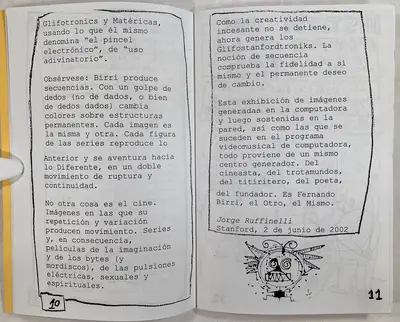 Glifotronics y Matéricas,
usando lo que él mismo
denomina "el pincel
electrónico", de "uso
adivinatorio".
Obsérvese: Birri produce
secuencias. Con un golpe de
dedos (no de dados, o bien
de dedos dados) cambia
colores sobre estructuras
permanentes. Cada imagen es
la misma y otra. Cada figura
de las series reproduce lo
Anterior y se aventura hacia
lo Diferente, en un doble
movimiento de ruptura y
continuidad.
No otra cosa es el cine.
Imágenes en las que su
repetición y variación
producen movimiento. Series
y, en consecuencia,
películas de la imaginación
y de los bytes (y
mordiscos), de las pulsiones
eléctricas, sexuales y
espirituales.
10
Como la creatividad
incesante no se detiene,
ahora genera los
Glifostanfordtroniks. La
noción de secuencia
comprueba la fidelidad a si
mismo y el permanente deseo
de cambio.
Esta exhibición de imágenes
generadas en la computadora
y luego sostenidas en la
pared, así como las que se
suceden en el programa
videomusical de computadora,
todo proviene de un mismo
centro generador. Del
cineasta, del trotamundos,
del titiritero, del poeta,
del fundador. Es Fernando
Birri, el Otro, el Mismo.
Jorge Ruffinelli
Stanford, 2 de junio de 2002
11